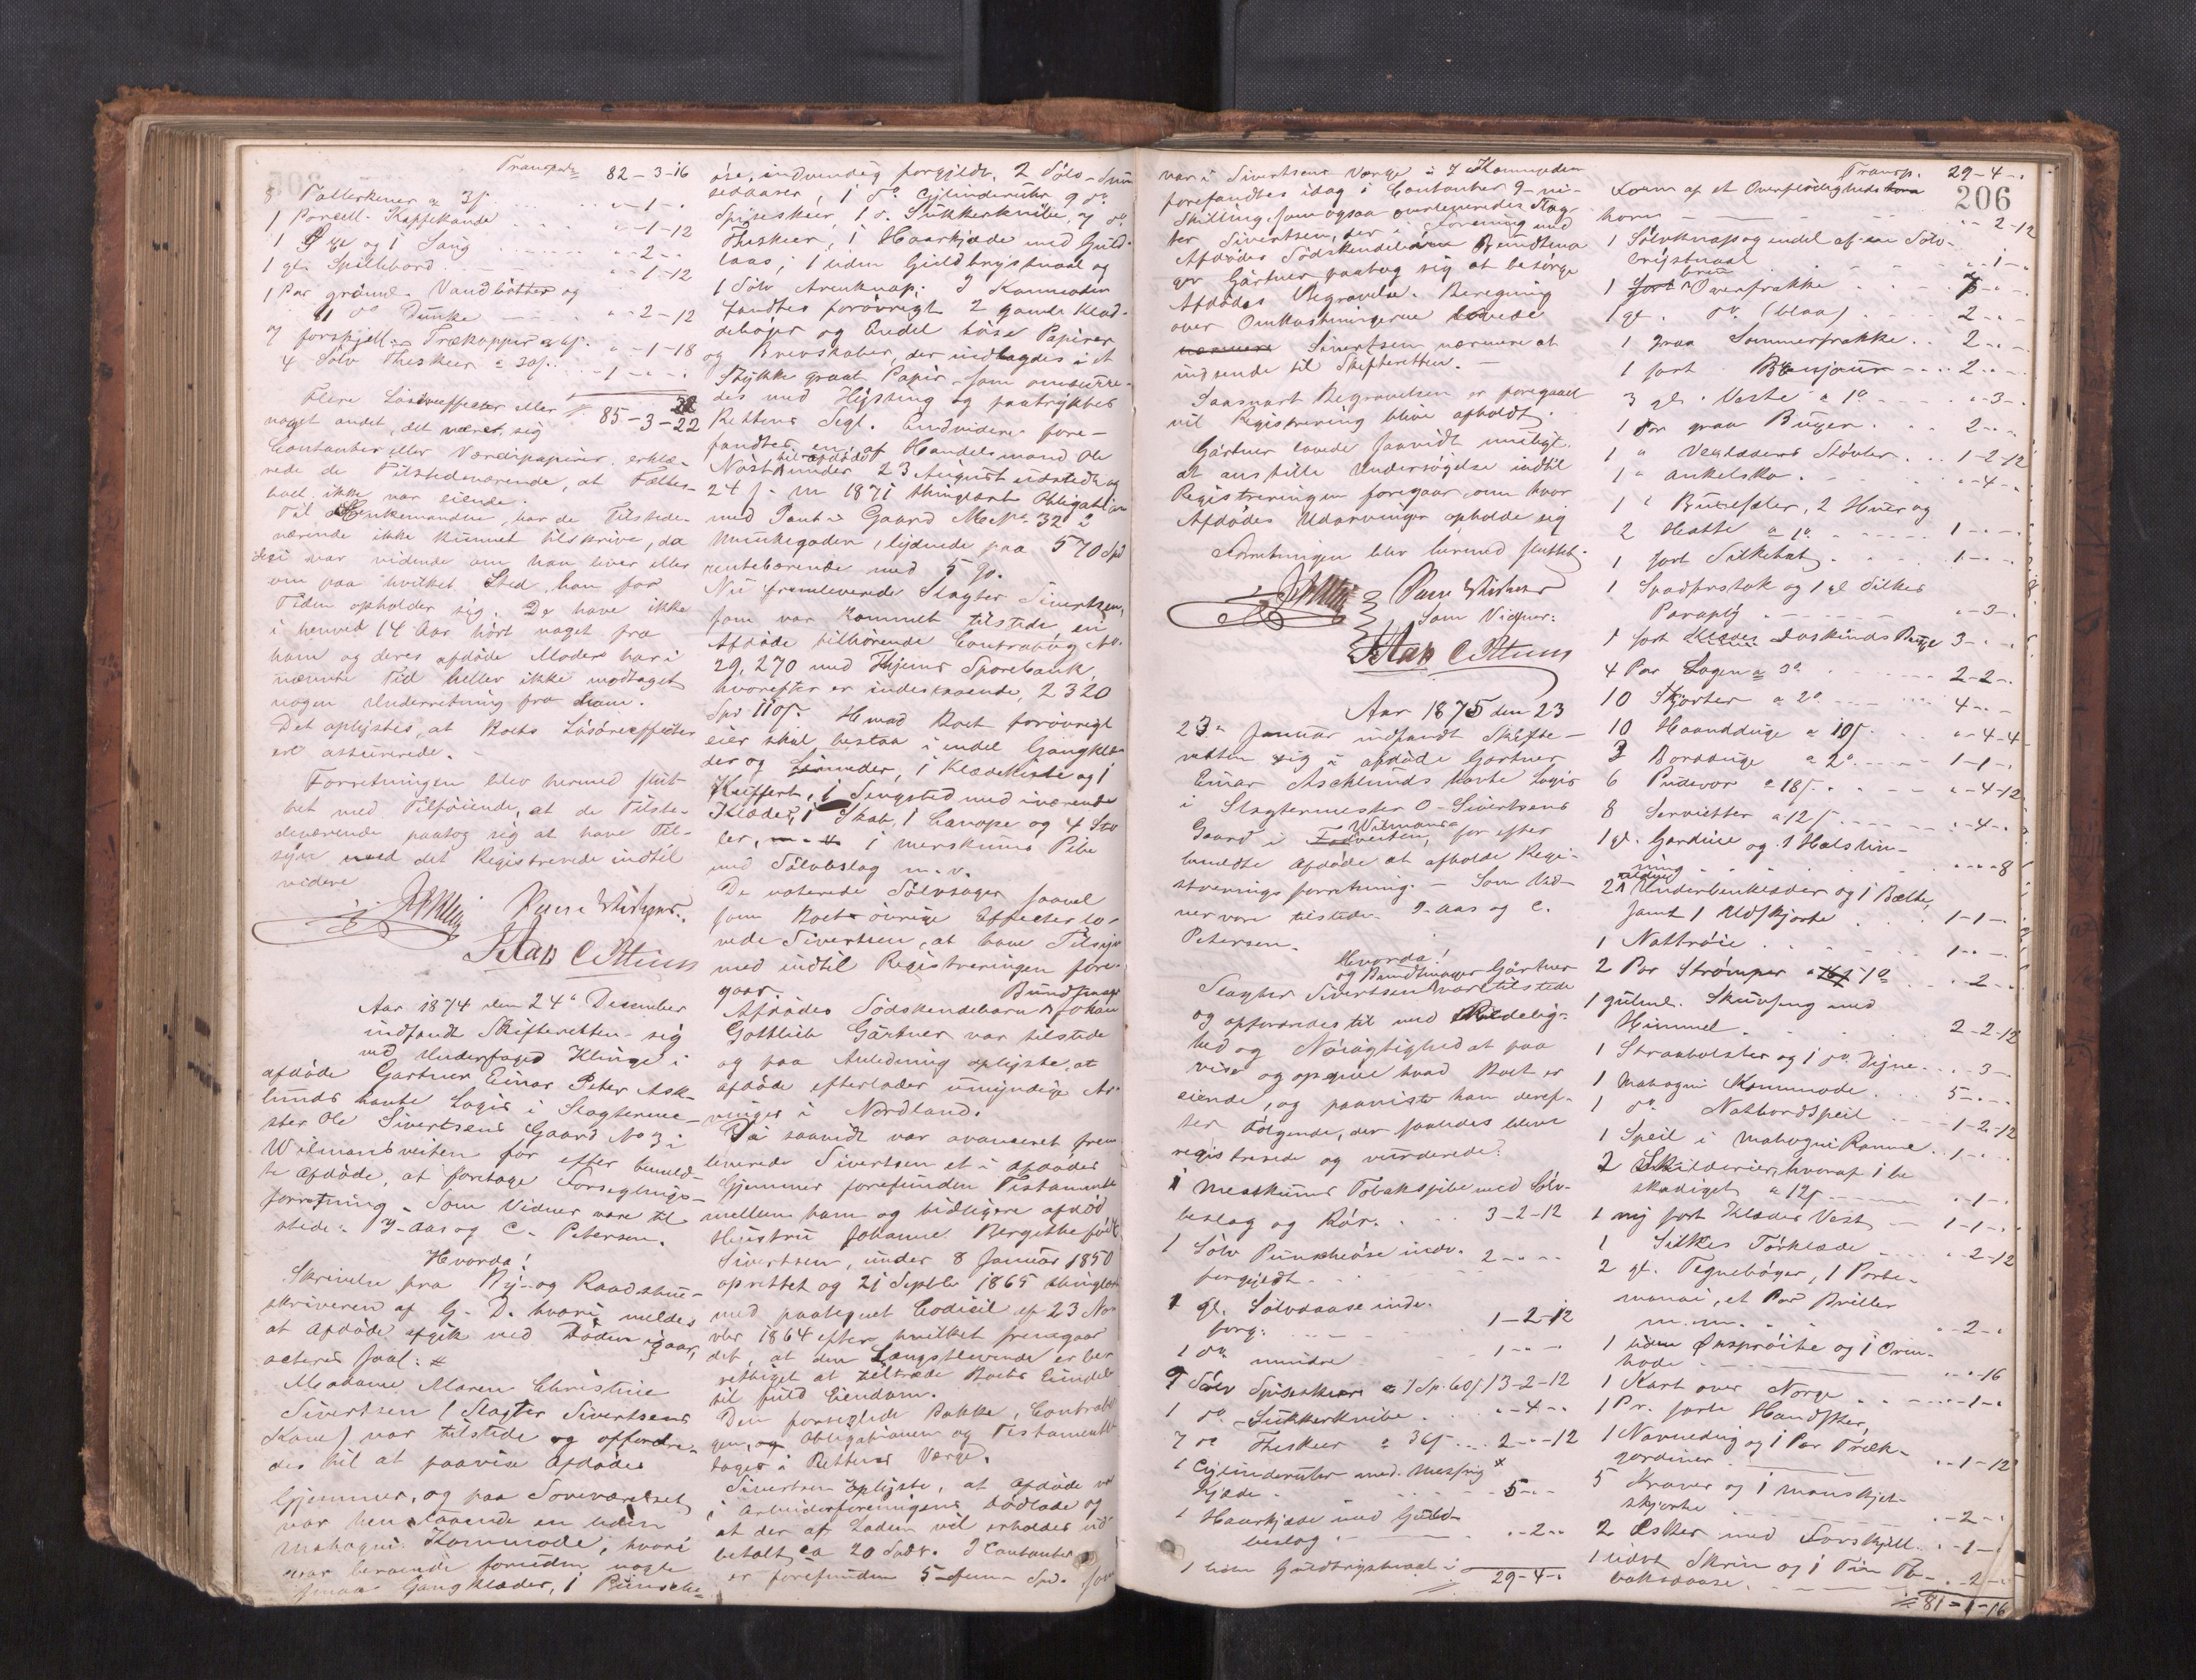 Transport 82-3-16
8 Tallerkener a 3 s. " - 1 - "
1 Porcell. Kaffekande " - 1-12
1 Øxe og 1 Saug " - 2 - "
1 gl. Spillebord " - 1-12
1 Par grønml. Vandbøtter og
1 do Dunke " - 2-12
7 forskjell. Trækopper a 6 s. " - 1-18
4 Sølv Theskeer a 30 s. 1 - " - "
85-3-22
Flere Løsøreeffecter eller
noget andet, det være sig
Contanter eller Værdipapirer, erklæ-
rede de Tilstedeværende, at Fælles-
boet ikke var eiende.
Til Enkemanden, har de Tilstede-
værende ikke kunnet tilskrive, da
de ei var vidende om han lever eller
om paa hvilket Sted han for
Tiden opholder sig. De have ikke
i henved 14 Aar hørt noget fra
ham og deres afdøde Moder har i
nævnte Tid heller ikke modtaget
nogen Underretning fra ham.
Det oplystes, at Boets Løsøreeffecter
er assurerede. -
Forretningen blev hermed slut-
tet med Tilføiende, at de Tilste-
deværende paatog sig at have Til-
syn med det Registrerede indtil
videre
Som Vidner:
J Aas C Petersen
Aar 1874 den 24de December
indfandt Skifteretten sig
ved Underfoged Klinge i
afdøde Gartner Einar Peter Ask-
lunds havte Logis i Slagterme-
ster Ole Sivertsens Gaard No 3 i
Wilmansveiten for efter bemeld-
te Afdøde, at foretage Forseglings-
forretning. Som Vidner vare til-
stede: J. Aas og C. Petersen.
Hvorda!
Skrivelse fra By- og Raadstue-
skriveren af G. D. hvori meldes
at Afdøde afgik ved Døden igaar,
acteres saal:
Madame Maren Christine
Sivertsen (Slagter Sivertsens
Kone) var tilstede og opfordre-
des til at paavise Afdødes
Gjemmer, og paa Soveværelset
var henstaaende en liden
Mahogni Kommode, hvori
var beroende foruden nogle
smaa Gangklæder, 1 Punsche-
øse, indvendig forgyldt, 2 Sølv-Snuu-
sedaaser, 1 do Cylinderuhr, 9 do
Spiseskeer, 1 d. Sukkerknibe, 7 do
Theskeer, 1 Haarkjæde med Guld-
laas, 1 liden Guldbrystnaal og
1 Sølv Armknap; I Kommoden
fandtes forøvrigt 2 gamle Kalen-
debøger og Endel løse Papirer
og Brevskaber, der indlagdes i et
Stykke graat Papir, som omsurre-
des med Hyssing og paatrykkes
Rettens Segl. Endvidere fore-
fandtes en af Handelsmand Ole
Nøst til afdøde under 23 August udstedt og
24 s. M 1871 thinglæst Obligation
med Pant i Gaard Matr. No 32 i
Munkegaden, lydende paa 570 Spd
rentebærende med 5 %.
Nu fremleverede Slagter Sivertsen,
som var kommet tilstede, en
Afdøde tilhørende Contrabog No.
29,270 med Thjems Sparebank,
hvorefter er indestaaende, 2320
Spd 110 s. Hvad Boet forøvrigt
eier skal bestaa i endel Gangklæ-
der og Linneder, 1 Klædekiste og 1
Kuffert, 1 Sengsted med iværende
Klæder, 1 Skab, 1 Canape og 4 Sto
ler, 1 merskums Pibe
med Sølvbeslag m. v.
De noterede Sølvsager saavel
som Boets øvrige Effecter lo-
vede Sivertsen, at have Tilsyn
med indtil Registreringen fore-
gaar.
Afdødes Sødskendebarn Bundtmager Johan
Gottlieb Gärtner var tilstede
og paa Anledning oplyste, at
afdøde efterlader umyndige Ar-
vinger i Nordland.
Da saavidt var avanceret frem-
leverede Sivertsen et i Afdødes
Gjemmer forefunden Testamente
mellem ham og tidligere afdød
Hustru Johanne Bergitte født
Sivertsen, under 8 Januar 1850
oprettet og 21 Septbr 1865 thinglæst
med paategnet Codicil af 23 No-
vbr 1864 efter hvilket fremgaar
det, at den Længstlevende er be-
rettiget at tiltræde Boets Eiendele
til fuld Eiendom.
Den forseglede Pakke, Contrabo
gen, og Obligationen og Testamentet
toges i Rettens Værge.
Sivertsen oplyste, at Afdøde var
i Arbeiderforeningens Dødlade og
at der af Laden vil erholdes ud-
betalt ca 20 Spdr. I Contanter
er forefunden 5 - fem - Spd. som
var i Sivertsens Værge. I Kommoden
forefandtes idag i Contanter 9 - ni -
Skilling som ogsaa overleveredes Slag-
ter Sivertsen, der i Forening med
Afdødes Sødskendebarn Bundtma-
ger Gärtner paatog sig at besørge
Afdødes Begravelse. Beregning
over Omkostningerne lovede
Sivertsen nærmere at
indsende til Skifteretten. -
Saasnart Begravelsen er foregaaet
vil Registrering blive afholdt.
Gärtner lovede saavidt muligt
at anstille Undersøgelse indtil
Registreringen foregaar, om hvor
Afdødes Udarvinger opholde sig
Forretningen blev hermed sluttet.
Som Vidner:
J Aas C Petersen
Aar 1875 den 23
23de Januar indfandt Skifte-
retten sig i afdøde Gartner
Einar Aschlunds havte Logis
i Slagtermester O. Sivertsens
Gaard i Wilmansveiten, for efter
bemeldte Afdøde at afholde Regi-
streringsforretning. - Som Vid-
ner vare tilstede J. Aas og C.
Petersen.
Hvorda!
Slagter Sivertsen og Bundtmager Gärtner var tilstede
og opfordredes til med Redelig-
hed og Nøiagtighed at paa
vise og opgive hvad Boet er
eiende, og paaviste han deref-
ter Følgende, der saaledes bleve
registrerede og vurderede:
1 Merskums Tobakspibe med Sølv-
beslag og Rør. 3-2-12
1 Sølv Punscheøse indv.
forgyldt. 2 - " - "
1 gl. Sølvdaase indv.
forg: 1-2-12
1 do mindre 1 - " - "
9 Sølv Spiseskeer a 1 Sp. 60 s. 13-2-12
1 do Sukkerknibe " - 4 - "
7 do Theskeer a 36 s. 2 - " -12
1 Cylinderuhr med Messing
kjæde 5 - " - "
1 Haarkjæde med Guld-
beslag " - 2 - "
1 liden Guldbrystnaal i
29-4 - "
Transp. 29-4 - "
206
Form af et Overflødigheds
horn " - 2-12
1 Sølvknap og endel af en Sølv-
brystnaal " - 1 - "
1 brun Overfrakke
1 gl. do (blaa) 2 - " - "
1 graa Sommerfrakke 2 - " - "
1 sort Bonjour 2 - " - "
3 gl. Veste a 1 o " - 3 - "
1 Par graa Buxer 2 - " - "
1 " Støvler 1-2-12
1 " Ankelsko " - 4 - "
1 " Buxeseler, 2 Huer og
2 Hatte a 1 o 1 - " - "
1 sort Silkehat 1 - " - "
1 Spadserstok og 1 gl Silkes
Paraply " - 3 - "
1 sort Buxe 3 - " - "
4 Par Lagen a 3 o 2-2 - "
10 Skjorter a 2 o 4 - " - "
10 Haandduge a 10 s. " - 4-4
3 Bordduge a 2 o 1-1 - "
6 Pudevor a 18 s. " - 4-12
8 Servietter a 12 s " - 4 - "
1 gl. Gardine og 1 Halslin-
ning " - " - 8
2 uldne Underbenklæder og 1 Bælte,
samt 1 Uldskjorte 1-1 - "
1 Nattrøie 1 - "
2 Par Strømper a 1 o " - 2 - "
1 gulml. Skuvseng med
Himmel 2-2-12
1 Straabolster og 1 do Dyne " - 3 - "
1 Mahogni Kommode 5 - " - "
1 do Natbordspeil 1-2-12
1 Speil i Mahogni Ramme 1 - " - "
2 Skilderier, hvoraf 1 be
skadiget a 12 s " - 1 - "
1 ny sort Klædes Vest 1-1 - "
1 Silkes Tørklæde " - 2-12
2 gl. Tegnebøger, 1 Porte-
monai, et Par Briller
m. m. " - 2 - "
1 liden Øresprøite og 1 Orin-
hode " - " -16
1 Kart over Norge " - 1 - "
1 Pr. sorte Handsker,
1 Navnedug og 1 Par Træk-
gardiner " - 1-12
5 Kraver og 1 Manskjet-
skjorte " - 2 - "
2 Æsker med Forskjell. " - 1 - "
1 lidet Skrin og 1 Tin To-
baksdaase " - 2 - "
81-1-16